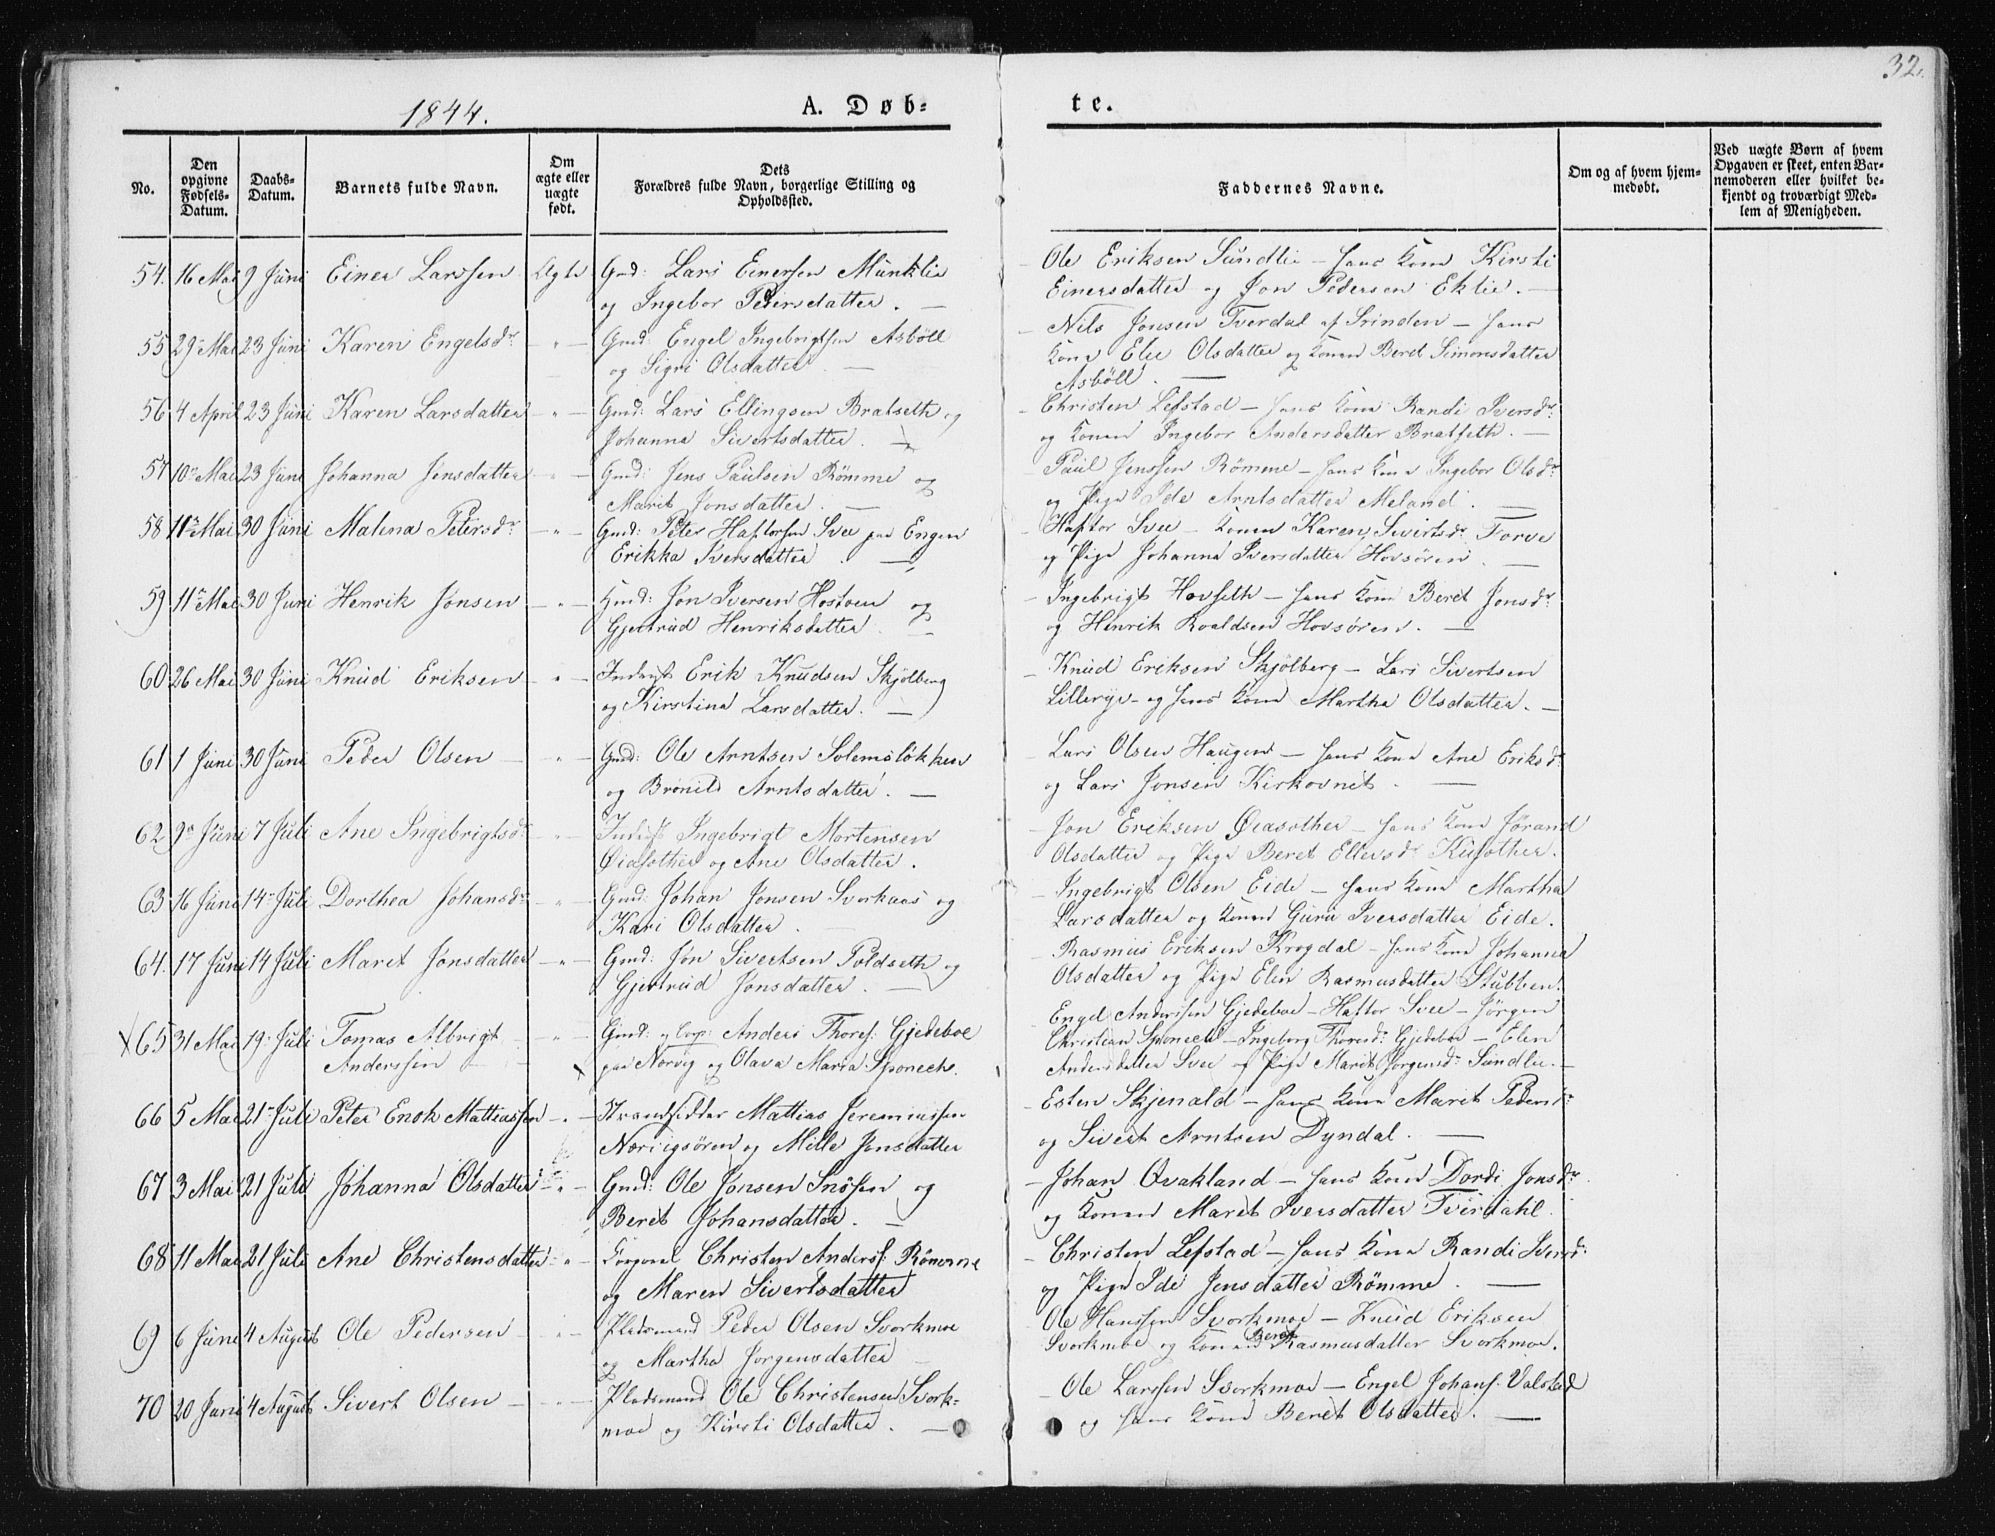 32.
1844.
A. Døb-
te.
No.
Den opgivne Fødsels-Datum.
Daabs-Datum.
Barnets fulde Navn.
Om ægte eller uægte født.
Dets Forældres fulde Navn, borgerlige Stilling og Opholdssted.
Faddernes Navne.
Om og af hvem hjemmedøbt.
Ved uægte Børn af hvem Opgaven er skeet, enten Barnemoderen eller hvilket bekjendt og troværdigt Medlem af Menigheden.
54. 16 Mai 9 Juni Einer Larssen Ægte Gmd: Lars Einersen Munklie
og Ingebor Pedersdatter. —
Ole Eriksen Sundlie — hans Kone Kirsti
Einersdatter og Jon Pedersen Eklie. —
55 29 Mai 23 Juni Karen Engelsdr — " — Gmd: Engel Ingebrigtsen Asbøll
og Sigri Olsdatter. —
Nils Jonsen Tverdal af Srinden — hans
Kone Elie Olsdatter og Konen Beret Simonsdatter
Asbøll. —
56 4 April 23 Juni Karen Larsdatter — " — Gmd: Lars Ellingsen Bratseth og
Johanna Sivertsdatter. —
Christen Lefstad — hans Kone Randi Iversdr
og Konen Ingebor Andersdatter Bratseth. —
57 10 Mai 23 Juni Johanna Jensdatter — " — Gmd: Jens Paulsen Rømme og
Marit Jonsdatter. —
Paul Jenssen Rømme — hans Kone Ingebor Olsdr
og Pige Ide Arntsdatter Meland. —
58 11 Mai 30 Juni Malena Petersdr — " — Gmd: Peter Haftorsen Svee paa Engen
Erikka Iversdatter. —
Haftor Svee — Konen Karen Sivertsdr Torve
og Pige Johanna Iversdatter Hovsøren. —
59 11 Mai 30 Juni Henrik Jonsen — " — Hmd: Jon Iversen Hostoen og
Gjertrud Henriksdatter. —
Ingebrigt Hovseth — hans Kone Beret Jonsdr
og Henrik Roaldsen Hovsøren. —
60 26 Mai 30 Juni Knud Eriksen — " — Inderst Erik Knudsen Skjølberg
og Kirstina Larsdatter. —
Knud Eriksen Skjølberg — Lars Sivertsen
Lillerye — og hans Kone Martha Olsdatter. —
61 1 Juni 30 Juni Peder Olsen — " — Gmd: Ole Arntsen Solemsløkken
og Brønild Arntsdatter. —
Lars Olsen Haugen — hans Kone Ane Eriksdr
og Lars Jonsen Kirkovnet. —
62 9 Juni 7 Juli Ane Ingebrigtsdr — " — Inderst Ingebrigt Mortensen
Øiasæther og Ane Olsdatter.
Jon Eriksen Øiasæther — hans Kone Jørand
Olsdatter og Pige Beret Ellersdr Kusæther.
63 16 Juni 14 Juli Dorthea Johansdr — " — Gmd: Johan Jonsen Svorkaas og
Kari Olsdatter. —
Ingebrigt Olsen Eide — hans Kone Martha
Larsdatter og Konen Guru Iversdatter Eide.
64. 17 Juni 14 Juli Maret Jonsdatter — " — Gmd: Jon Sivertsen Poldseth og
Gjertrud Jonsdatter. —
Rasmus Eriksen Krogdal — hans Kone Johanna
Olsdatter og Pige Elen Rasmusdatter Stubben.
65 31 Mai 19 Juli Tomas Albrigt
Anderssen — " — Gmd: og Corp: Anders Thores: Gjedeboe
paa Norvig og Olava Maria Sponech.
Engel Andersen Gjedeboe — Haftor Svee — Jørgen
Christian Sponech — Ingeborg Thoresdr Gjedeboe — Elen
Andersdatter Svee og Pige Marit Jørgensdr Sundlie. —
66 5 Mai 21 Juli Peter Enok Mattiassen — " — Strandsidder Mattias Jeremiassen
Nervigsøren og Mille Jonsdatter
Esten Skjenald — hans Kone Marit Pedersdr
og Sivert Arntsen Dyndal. —
67 3 Mai 21 Juli Johanna Olsdatter — " — Gmd: Ole Jonsen Snøsen og
Beret Johansdatter. —
Johan Qvakland — hans Kone Dordi Jonsdr
og Konen Maret Iversdatter Tverdahl.
68 11 Mai 21 Juli Ane Christensdatter — " — Corporal Christen Anders: Rømme
og Maren Sivertsdatter
Christen Lefstad — hans Kone Randi Iversdr
og Pige Ide Jensdatter Rømme. —
69 6 Juni 4 August Ole Pedersen — " — Pladsmand Peder Olsen Svorkmoe
og Martha Jørgensdatter —
Ole Hanssen Svorkmoe — Knud Eriksen
Svorkmoe og Konen Beret Rasmusdatter Svorkmoe.
70 20 Juni 4 August Sivert Olsen — " — Pladsmand Ole Christensen Svork-
moe og Kirsti Olsdatter. —
Ole Larssen Svorkmoe — Engel Johans: Valstad
og hans Kone Beret Olsdatter. —